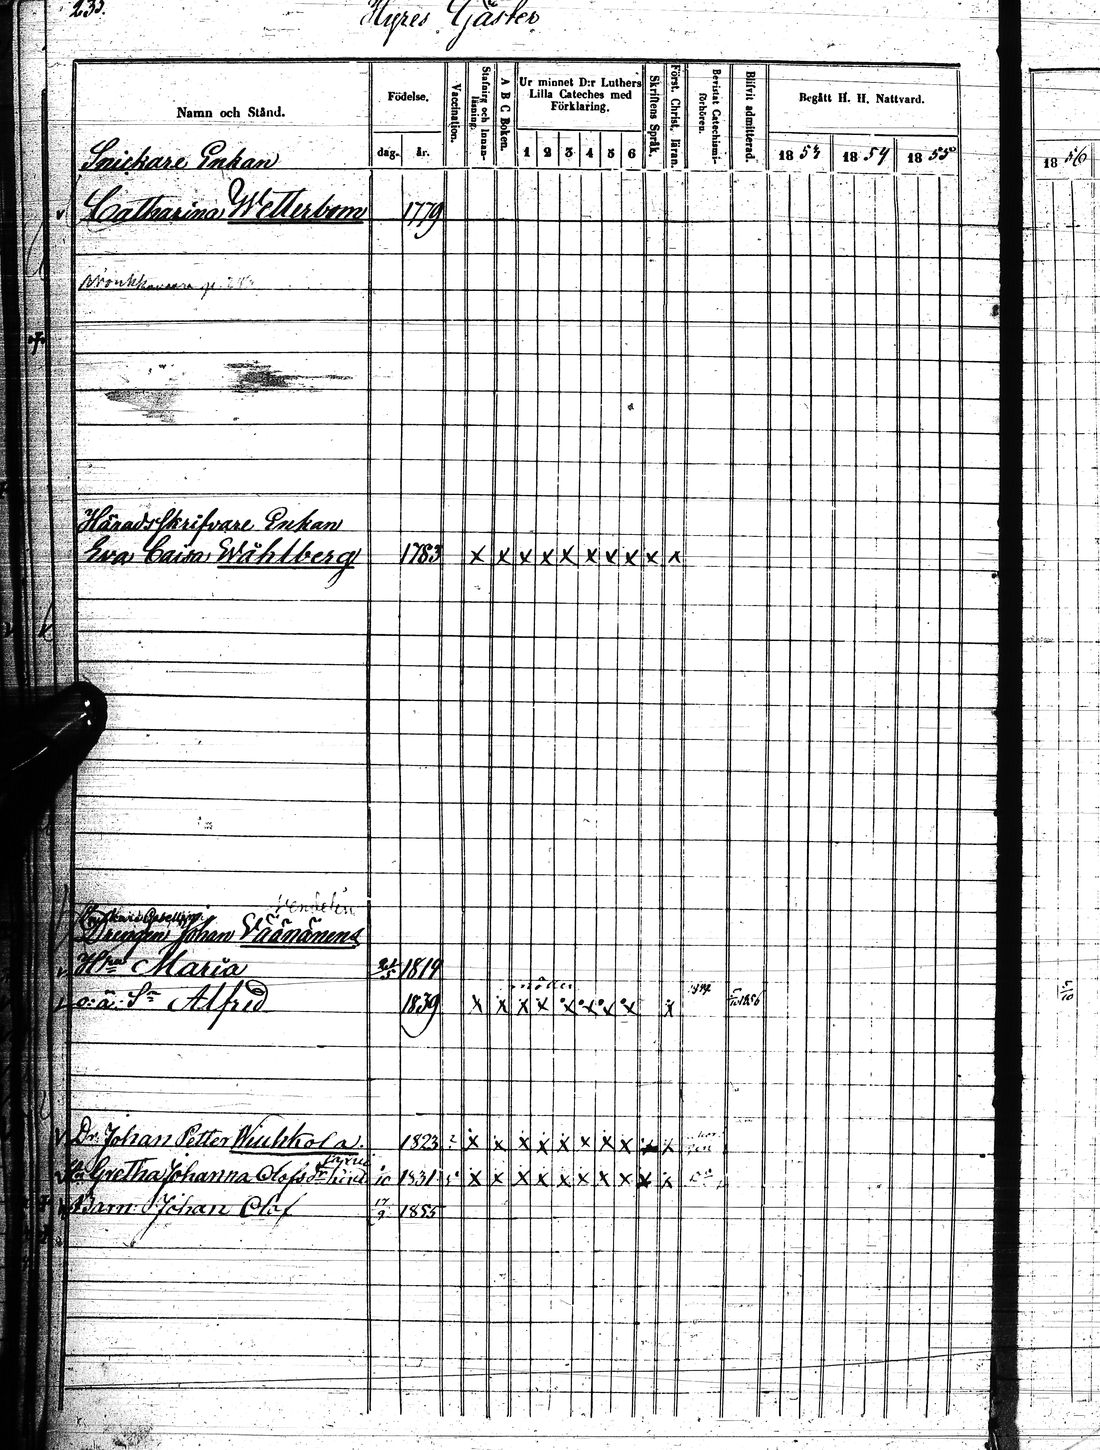 233.
Hyres Gäster
Namn och Stånd.
Födelse.
dag. år.
Vaccination.
Stafning och Innanläsning.
A B C Boken.
Ur minnet D:r Luthers
Lilla Cateches med
Förklaring.
1 2 3 4 5 6
Skriftens Språk.
Först. Christ. läran.
Bevistat Catechismiförhören.
Blifvit admitterad.
Begått H. H. Nattvard.
1853 1854 1855
1856
Snickare Enkan
Catharina Wetterbom 1779
Häradsskrifvare Enkan
Eva Caisa Wåhlberg 1783 x x x x x x x x x x
Drengen Johan Väänänens
Hru Maria 1819
o. ä. Sn Alfred 1839 x x x x x x x x x 1856
Dr. Johan Petter 1823 x x x x x x x x x x
Gretha Johanna Olofs dr 10 1831 x x x x x x x x x x
Barn: Johan Olof 17/9 1855